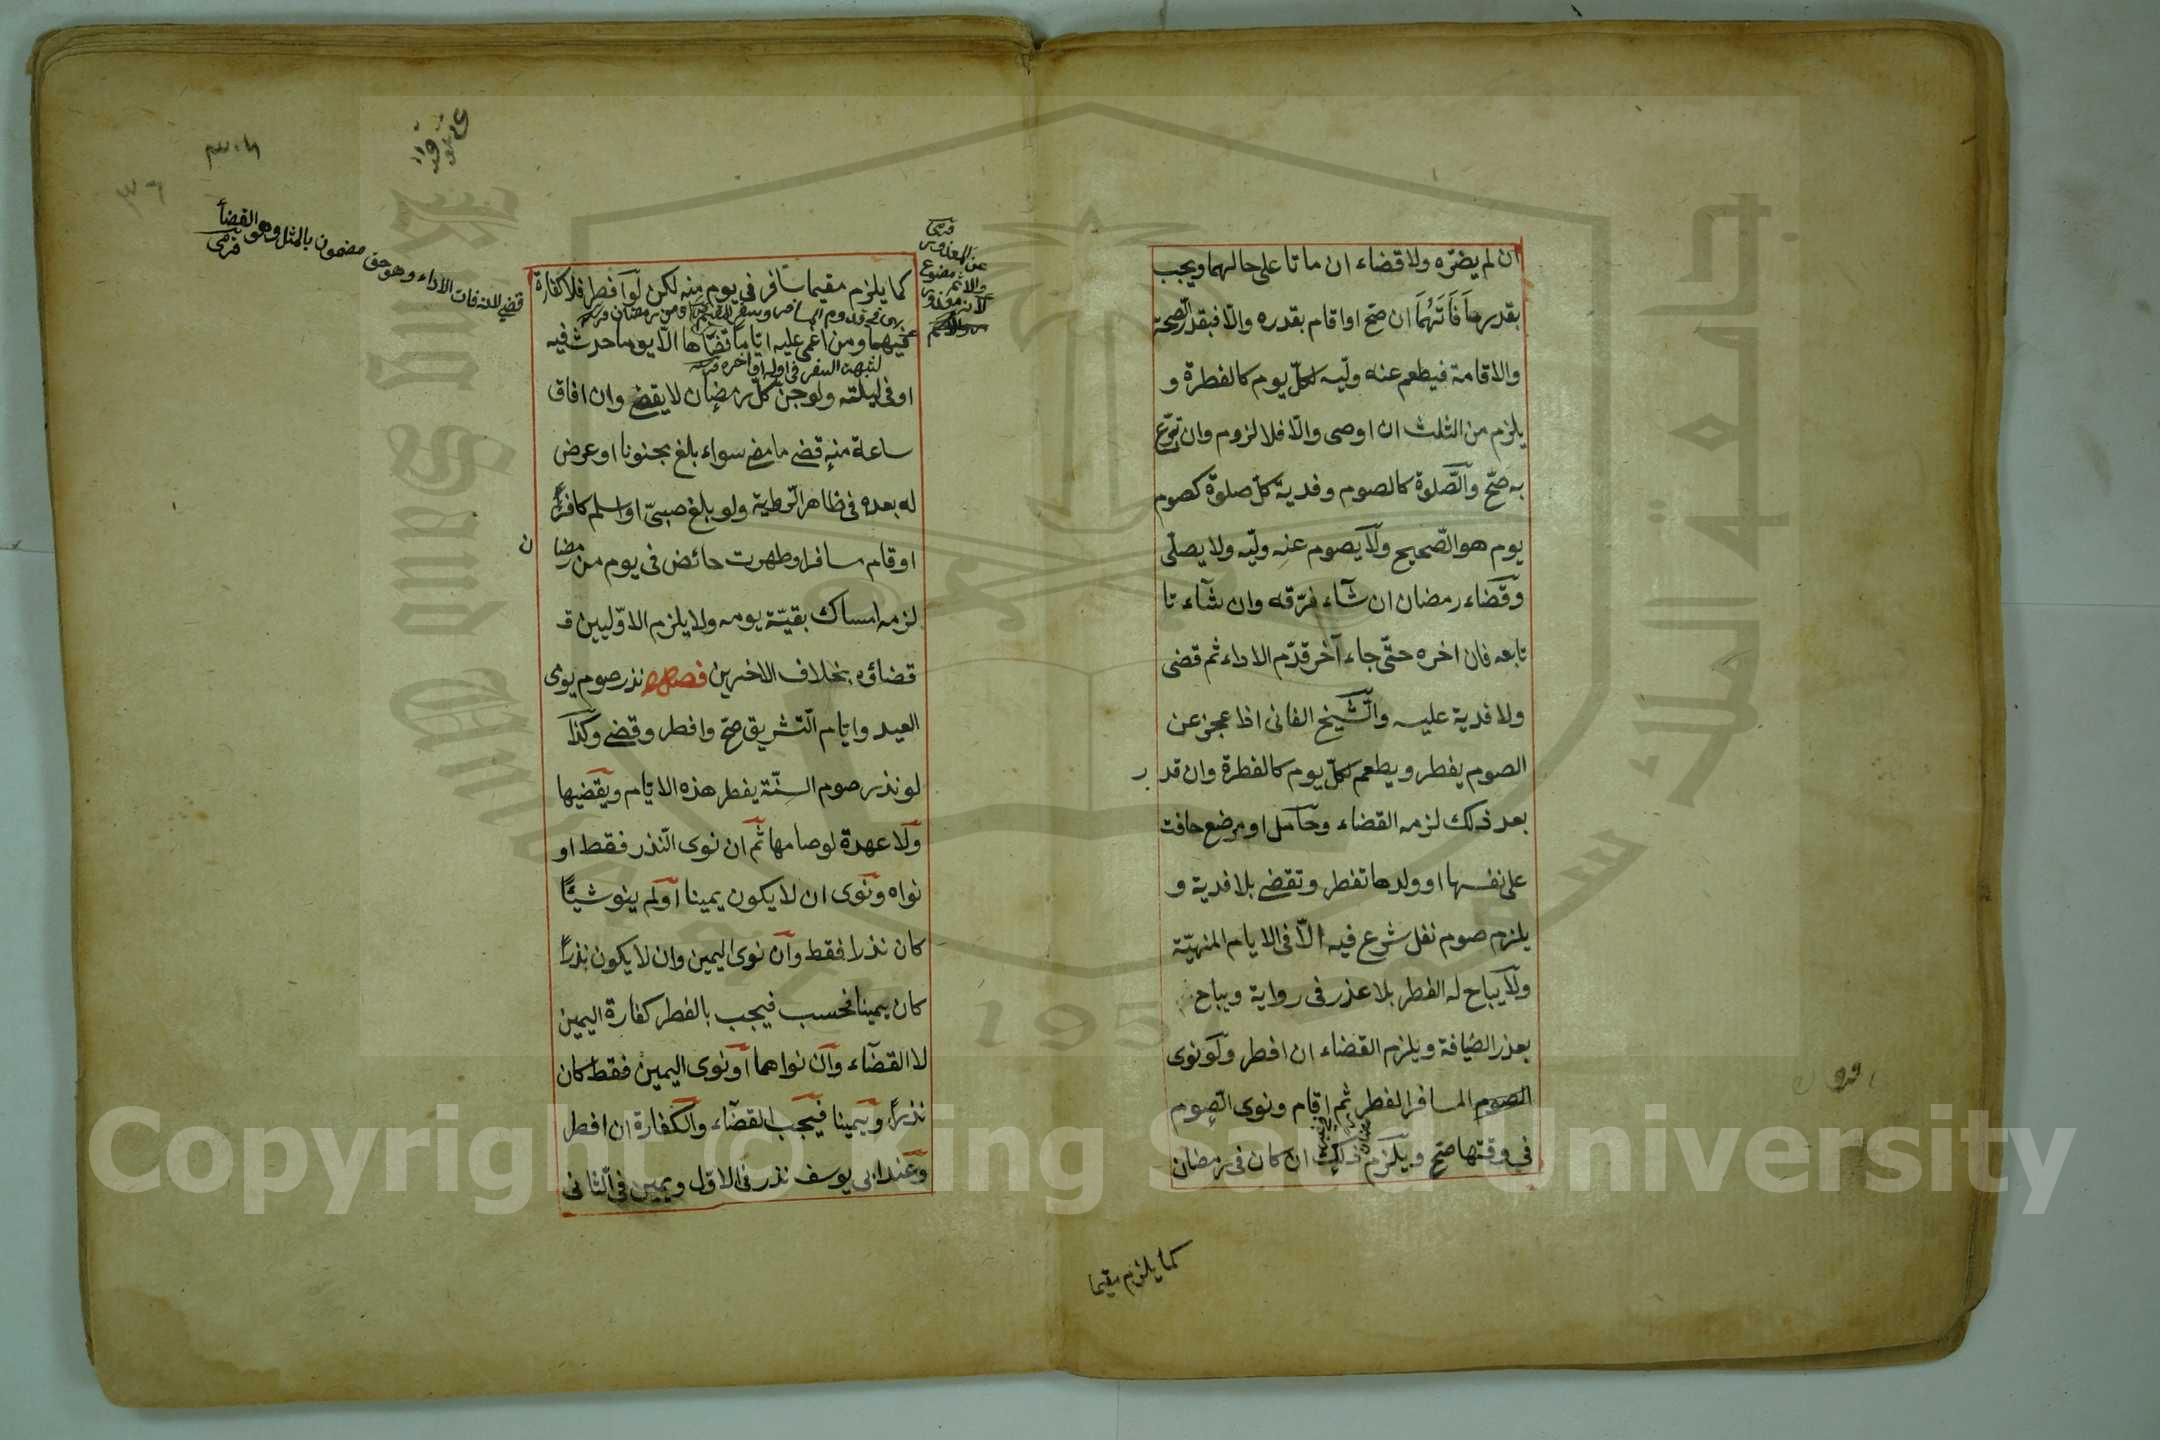 ان لم يضرّه ولا قضاء ان ماتا على حالهما ويجب
بقدر ما فاتهما ان صح او اقام بقدره والّا فبقدر الصحة
والاقامة فيطعم عنه وليّه لكلّ يوم كالفطرة و
يلزم من الثلث ان اوصى والّا فلا لزوم وان تبرّع
به صحّ والصّلوة كالصوم وفدية كلّ صلوة كصوم
يوم هو الصّحيح ولا يصوم عنه وليّه ولا يصلّى
وقضاء رمضان ان شآء فرّقه وان شآء تا
تابعه فان اخره حتّى جاء آخر قدّم الاداء ثم قضى
ولا فدية عليه والشّيخ الفانى اذا عجز عن
الصوم يفطر ويطعم لكلّ يوم كالفطرة وان قد ر
بعد ذلك لزمه القضاء وحامل او مرضع خافت
على نفسها او ولدها تفطر وتقضى بلا فدية و
يلزم صوم نفل شرع فيه الّا فى الايام المنهيّة
ولا يباح له الفطر بلا عذر فى رواية ويباح
بعذر الضيافة ويلزم القضاء ان افطر ولو نوى
الصوم المسافر الفطر ثم اقام ونوى الصّوم
في وقتها صحّ ويلزم ذلك ان كان فى رمضان
كما يلزم مقيما
كما يلزم مقيما سافر فى يوم منه لكن لو افطر فلا كفارة
فيهما ومن اغمى عليه ايّاما قضاها الّا يوما حدث فيه
او فى ليلته ولو جنّ كلّ رمضان لا يقضى وان افاق
ساعة منه قضى ما مضى سواء بلغ مجنونا او عرض
له بعده فى ظاهر الرّواية ولو بلغ صبىّ او اسلم كافر
او قام مسافر او طهرت حائض فى يوم من رمضا ن
لزمه امساك بقيّة يومه ولا يلزم الاوّليين قـ
قضاؤه بخلاف الاخيرين فصل نذر صوم يومى
العيد وايّام التّشريق صحّ وافطر وقضى وكذا
لو نذر صوم السنّة يفطر هذه الايّام ويقضيها
ولا عهدة لو صامها ثم ان نوى النّذر فقط او
نواه ونوى ان لا يكون يمينا او لم ينو شيئًا
كان نذرا فقط وان نوى اليمين وان لا يكون نذرًا
كان يمينا فحسب فيجب بالفطر كفارة اليمين
لا القضآء وان نواهما او نوى اليمين فقط كان
نذرًا ويمينا فيجب القضآء والكفارة ان افطر
وعند ابى يوسف نذر فى الاوّل ويمين فى الثّانى
مضمون بالمثل وهو القضأ